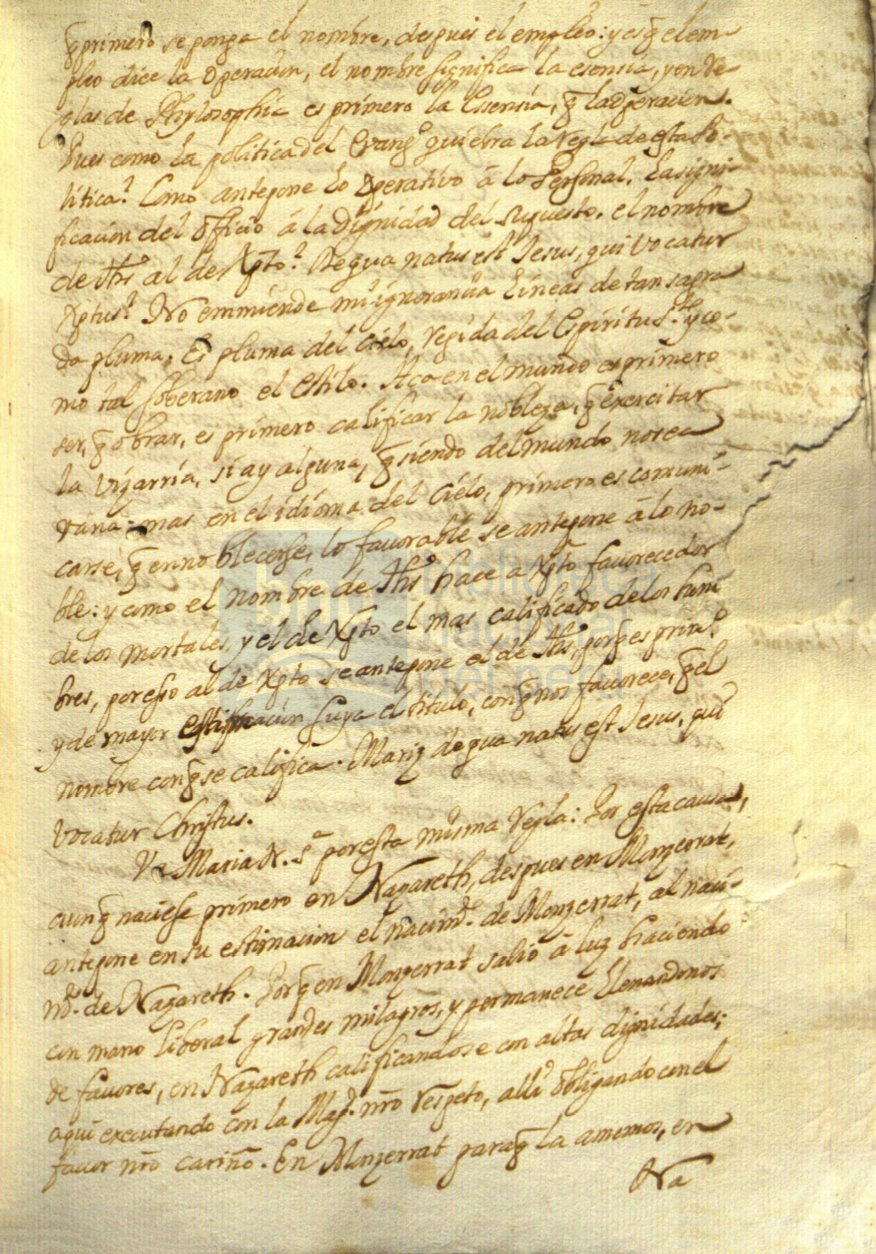 q̃ primero se ponga el nombre, despues el empleo: y es q̃ el em-
pleo dice la operacion, el nombre significa la esensia, y en Re-
glas de Phylosophia es primero la Essensia, q̃ la operacion.
Pues como la politica del Evang.º quiebra la regla de esta Po-
lítica? Como antepone lo operativo â lo Personal, la signi-
ficacion del officio â la Dignidad del supuesto, el nombre
de Jhs al de Xpto? De qua natus est Jesus, qui vocatur
Xptus? No emmiende mi ignorancia lineas de tan sagra
da pluma. Es pluma del Cielo, regida del Espiritu S.to y co-
mo tal soberano el estilo. Aca en el mundo es primero
ser, q̃ obrar, es primero calificar la nobleza, q̃ exercitar
la vizarria, si ay alguna, q̃ siendo del mundo no sea
vana: mas en el idioma del Cielo, primero es comuni-
carse, q̃ ennoblecerse, lo favorable se antepone â lo no-
ble: y como el nombre de Jhs hace a Xpto favorecedor
de los mortales, y el de Xpto el mas calificado de los hom
bres, por esso al de Xpto se antepone el de Jhs, porq̃ es prim.º
y de mayor estimacion suya el titulo, con q̃ nos favorece, q̃ el
nombre con q̃ se califica. Mariæ de qua natus est Jesus, qui
vocatur Christus.
Maria N. S.ª por esta misma regla: Por esta causa,
aunq̃ naciese primero en Nazareth, despues en Monzerrat,
antepone en su estimacion el nacim.to de Monzerrat, al naci-
m.to de Nazareth. Porq̃ en Monzerrat salió â luz haciendo
con mano liberal grandes milagros, y permanece llenandonos
de favores, en Nazareth calificandose con altas dignidades;
aqui executando con la Mag.d nr̃o respeto, alli obligando con el
favor nr̃o cariño. En Monzerrat para q̃ la amemos, en
Na